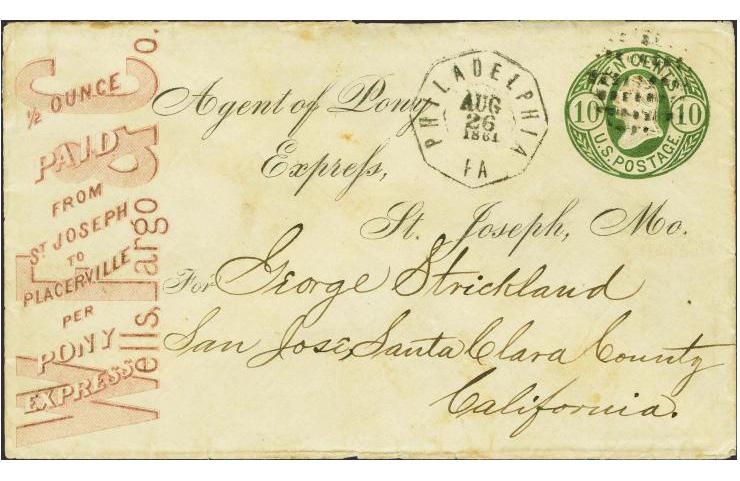 ½ OUNCE
PAID
FROM
ST JOSEPH
TO
PLACERVILLE
PER
PONY
EXPRESS
Wells, Fargo & Co.
Agent of Pony
Express,
St. Joseph, Mo.
For George Strickland
San José, Santa Clara County
California.
PHILADELPHIA
AUG
26
1861
PA
TEN CENTS
10 10
U.S. POSTAGE